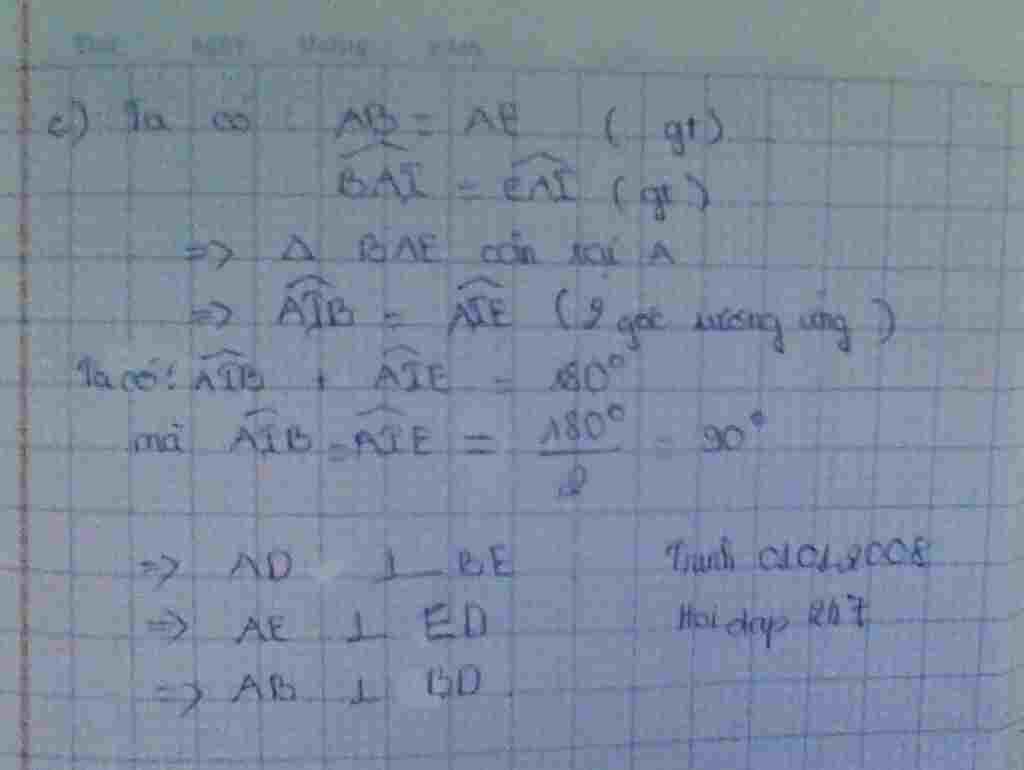 c) Ta có : AB = AE ( gt )
$\widehat{BAI}$ = $\widehat{EAI}$ ( gt )
=> Δ BAE cân tại A
=> $\widehat{AIB}$ = $\widehat{AIE}$ ( 2 góc tương ứng )
Ta có: $\widehat{AIB}$ + $\widehat{AIE}$ = 180°
mà $\widehat{AIB}$ = $\widehat{AIE}$ = $\frac{180°}{2}$ = 90°
=> AD ⊥ BE
Trinh 01012008
=> AE ⊥ ED
Hoidap 247
=> AB ⊥ BD